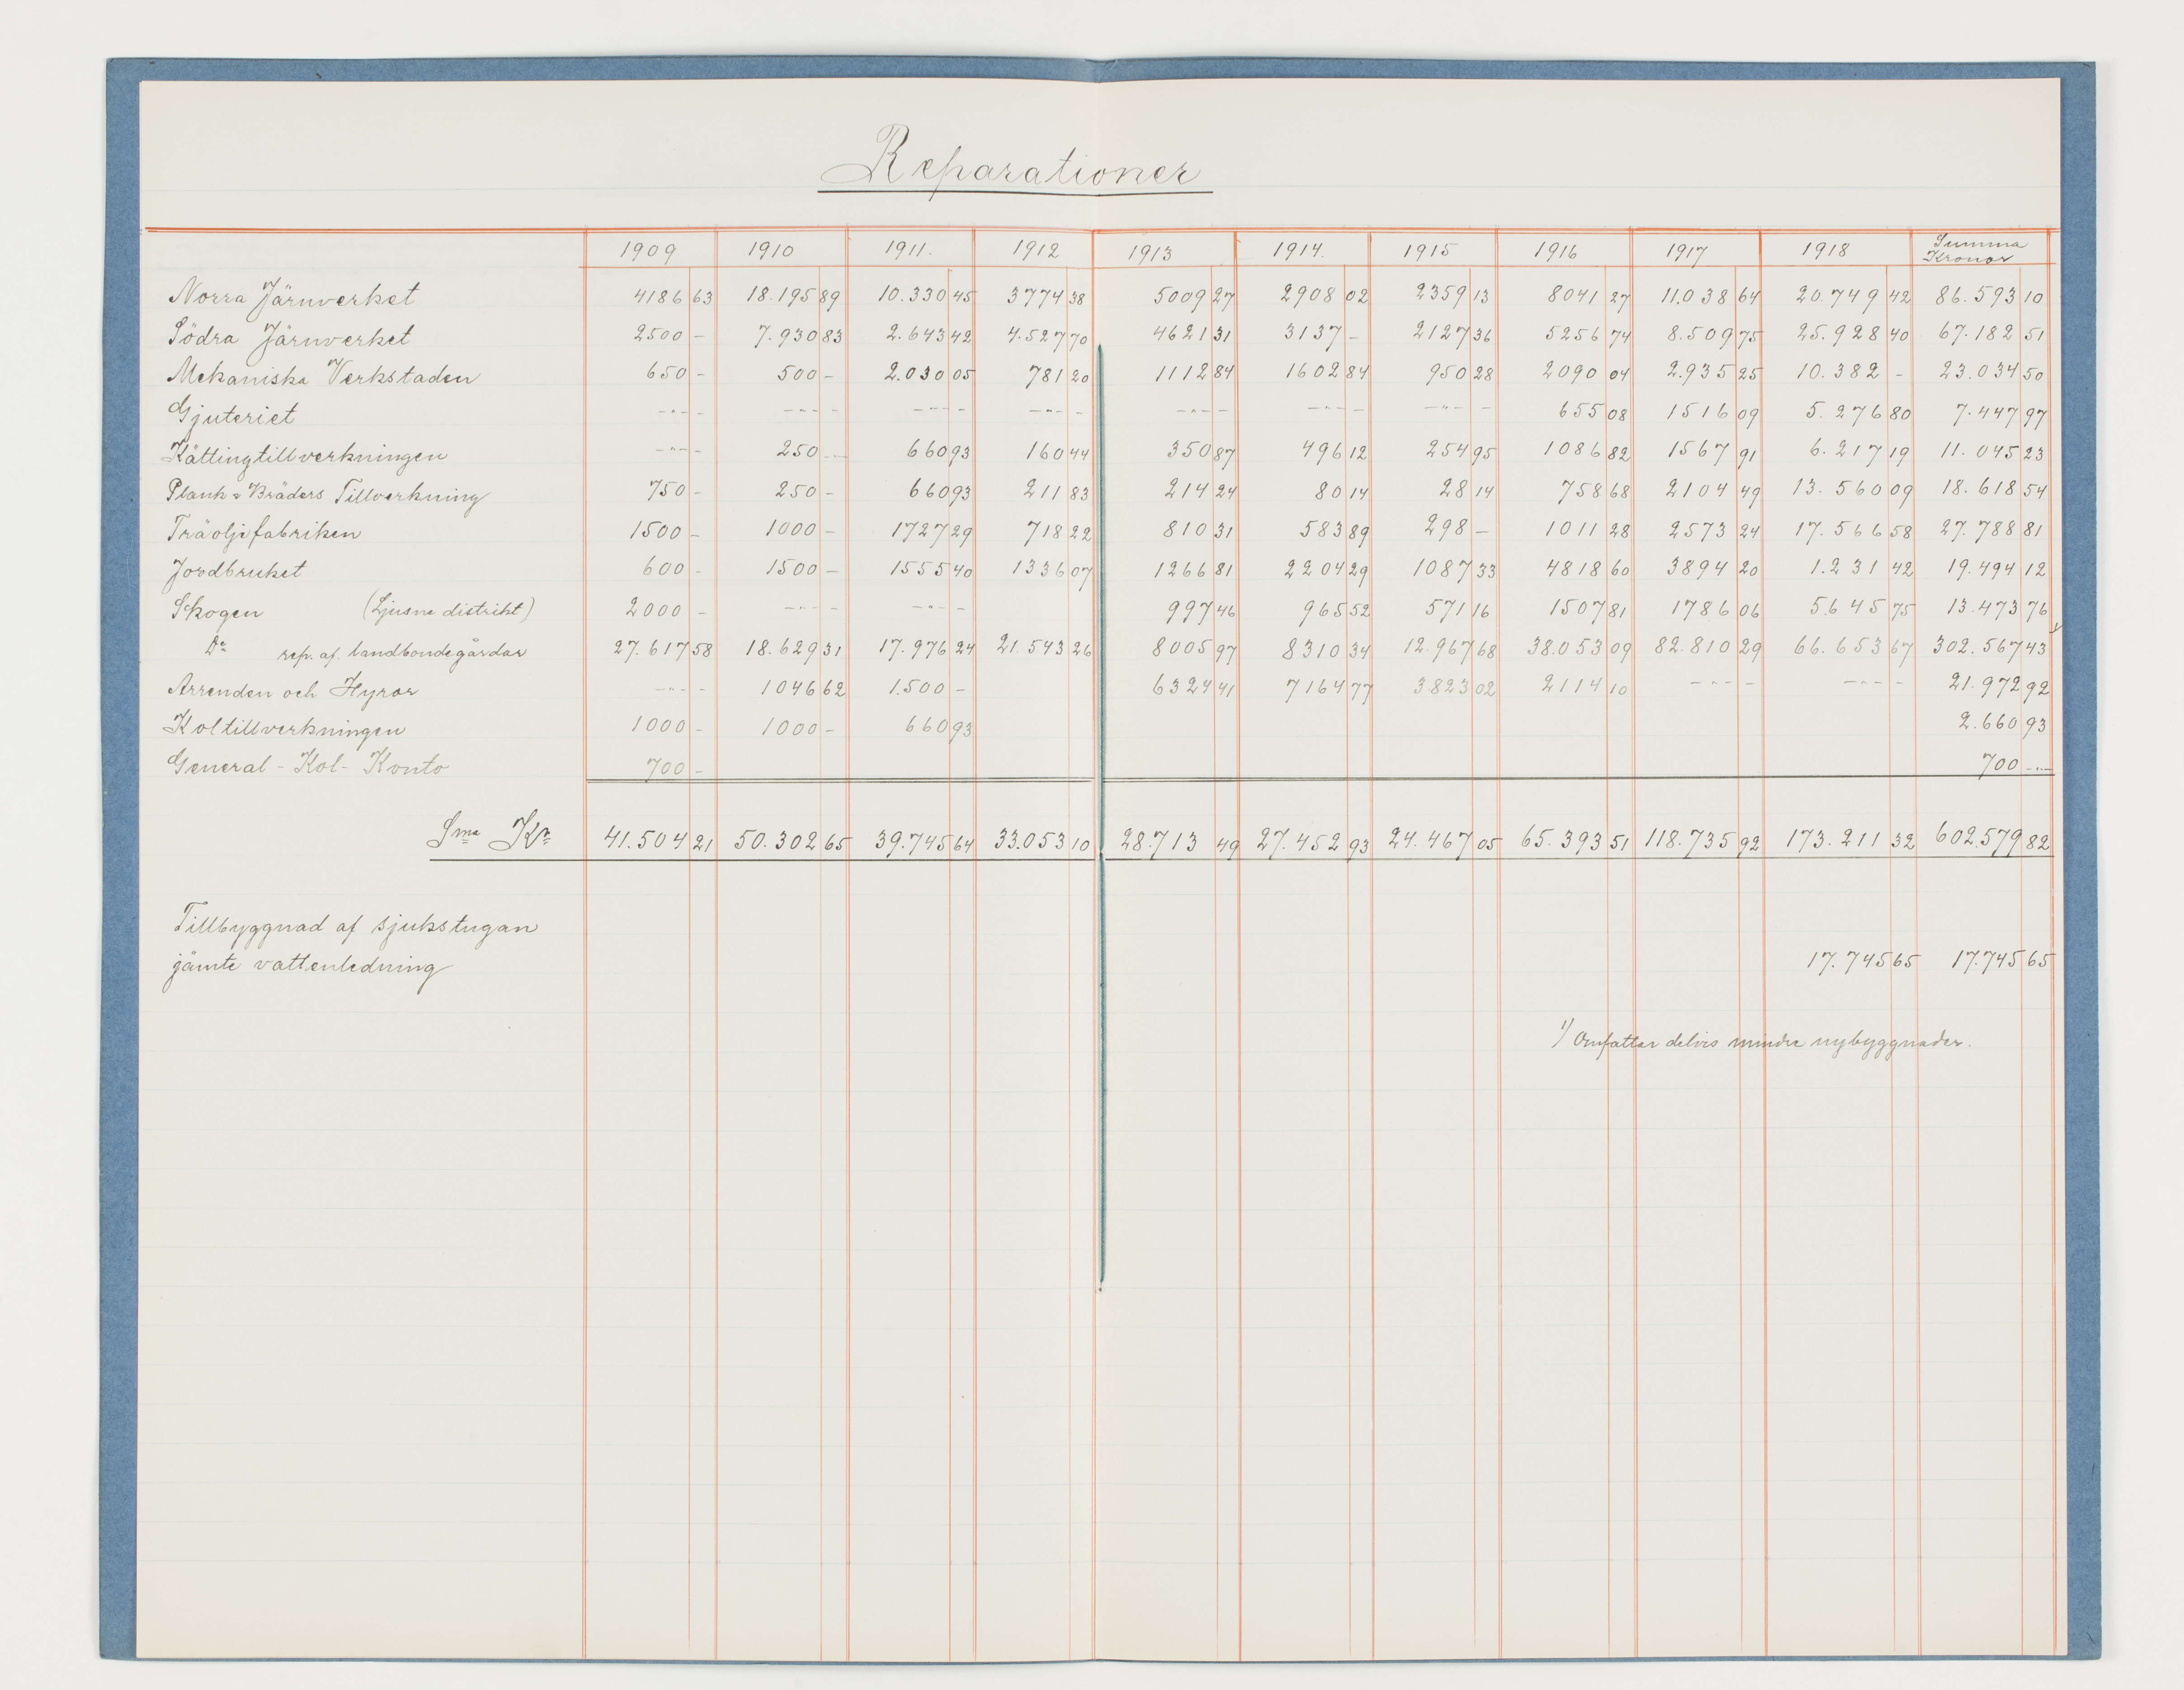 Reparationer
1909 1910 1911. 1912 1913 1914. 1915 1916 1917 1918 Summa Kronor
Norra Järnverket 4186 63 18.195 89 10.330 45 3774 38 5009 27 2908 02 2359 13 8041 27 11.038 64 20.749 42 86.593 10
Södra Järnverket 2500 - 7.930 83 2.643 42 4.527 70 4621 31 3137 - 2127 36 5256 74 8.509 75 25.928 40 67.182 51
Mekaniska Verkstaden 650 - 500 - 2.030 05 781 20 1112 84 1602 84 950 28 2090 04 2.935 25 10.382 - 23.034 50
Gjuteriet -"- - -"- - -"- - -"- - -"- - -"- - -"- - 655 08 1516 09 5.276 80 7.447 97
Kättingtillverkningen -"- - 250 - 660 93 160 44 350 87 496 12 254 95 1086 82 1567 91 6.217 19 11.045 23
Plank o Bräders Tillverkning 750 - 250 - 660 93 211 83 214 24 80 14 28 14 758 68 2104 49 13.560 09 18.618 54
Träoljefabriken 1500 - 1000 - 1727 29 718 22 810 31 583 89 298 - 1011 28 2573 24 17.566 58 27.788 81
Jordbruket 600 - 1500 - 1555 40 1336 07 1266 81 2204 29 1087 33 4818 60 3894 20 1.231 42 19.494 12
Skogen (Ljusne distrikt) 2000 - -"- - -"- - 997 46 965 52 571 16 1507 81 1786 06 5.645 75 13.473 76
Do rep. af. landbondegårdar 27.617 58 18.629 31 17.976 24 21.543 26 8005 97 8310 34 12.967 68 38.053 09 82.810 29 66.653 67 302.567 43 1)
Arrenden och Hyror -"- - 1046 62 1.500 - 6324 41 7164 77 3.823 02 2114 10 -"- - -"- - 21.972 92
Koltillverkningen 1000 - 1000 - 660 93 2.660 93
General - Kol - Konto 700 - 700 -"-
Sma Kr 41.504 21 50.302 65 39.745 64 33.053 10 28.713 49 27.452 93 24.467 05 65.393 51 118.735 92 173.211 32 602.579 82
Tillbyggnad af sjukstugan
jämte vattenledning 17.745 65 17.745 65
1) Omfattar delvis mindre nybyggnader.